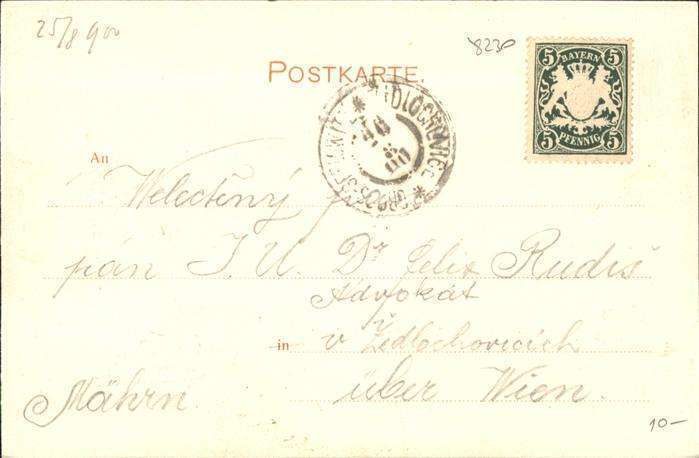 25/8 900
8230
POSTKARTE.
5 BAYERN 5
5 PFENNIG 5
An
Welectěný
pán J. U. Dr Felix Rudiš
Advokát
in v Židlochovicích
Mähren. über Wien.
10-